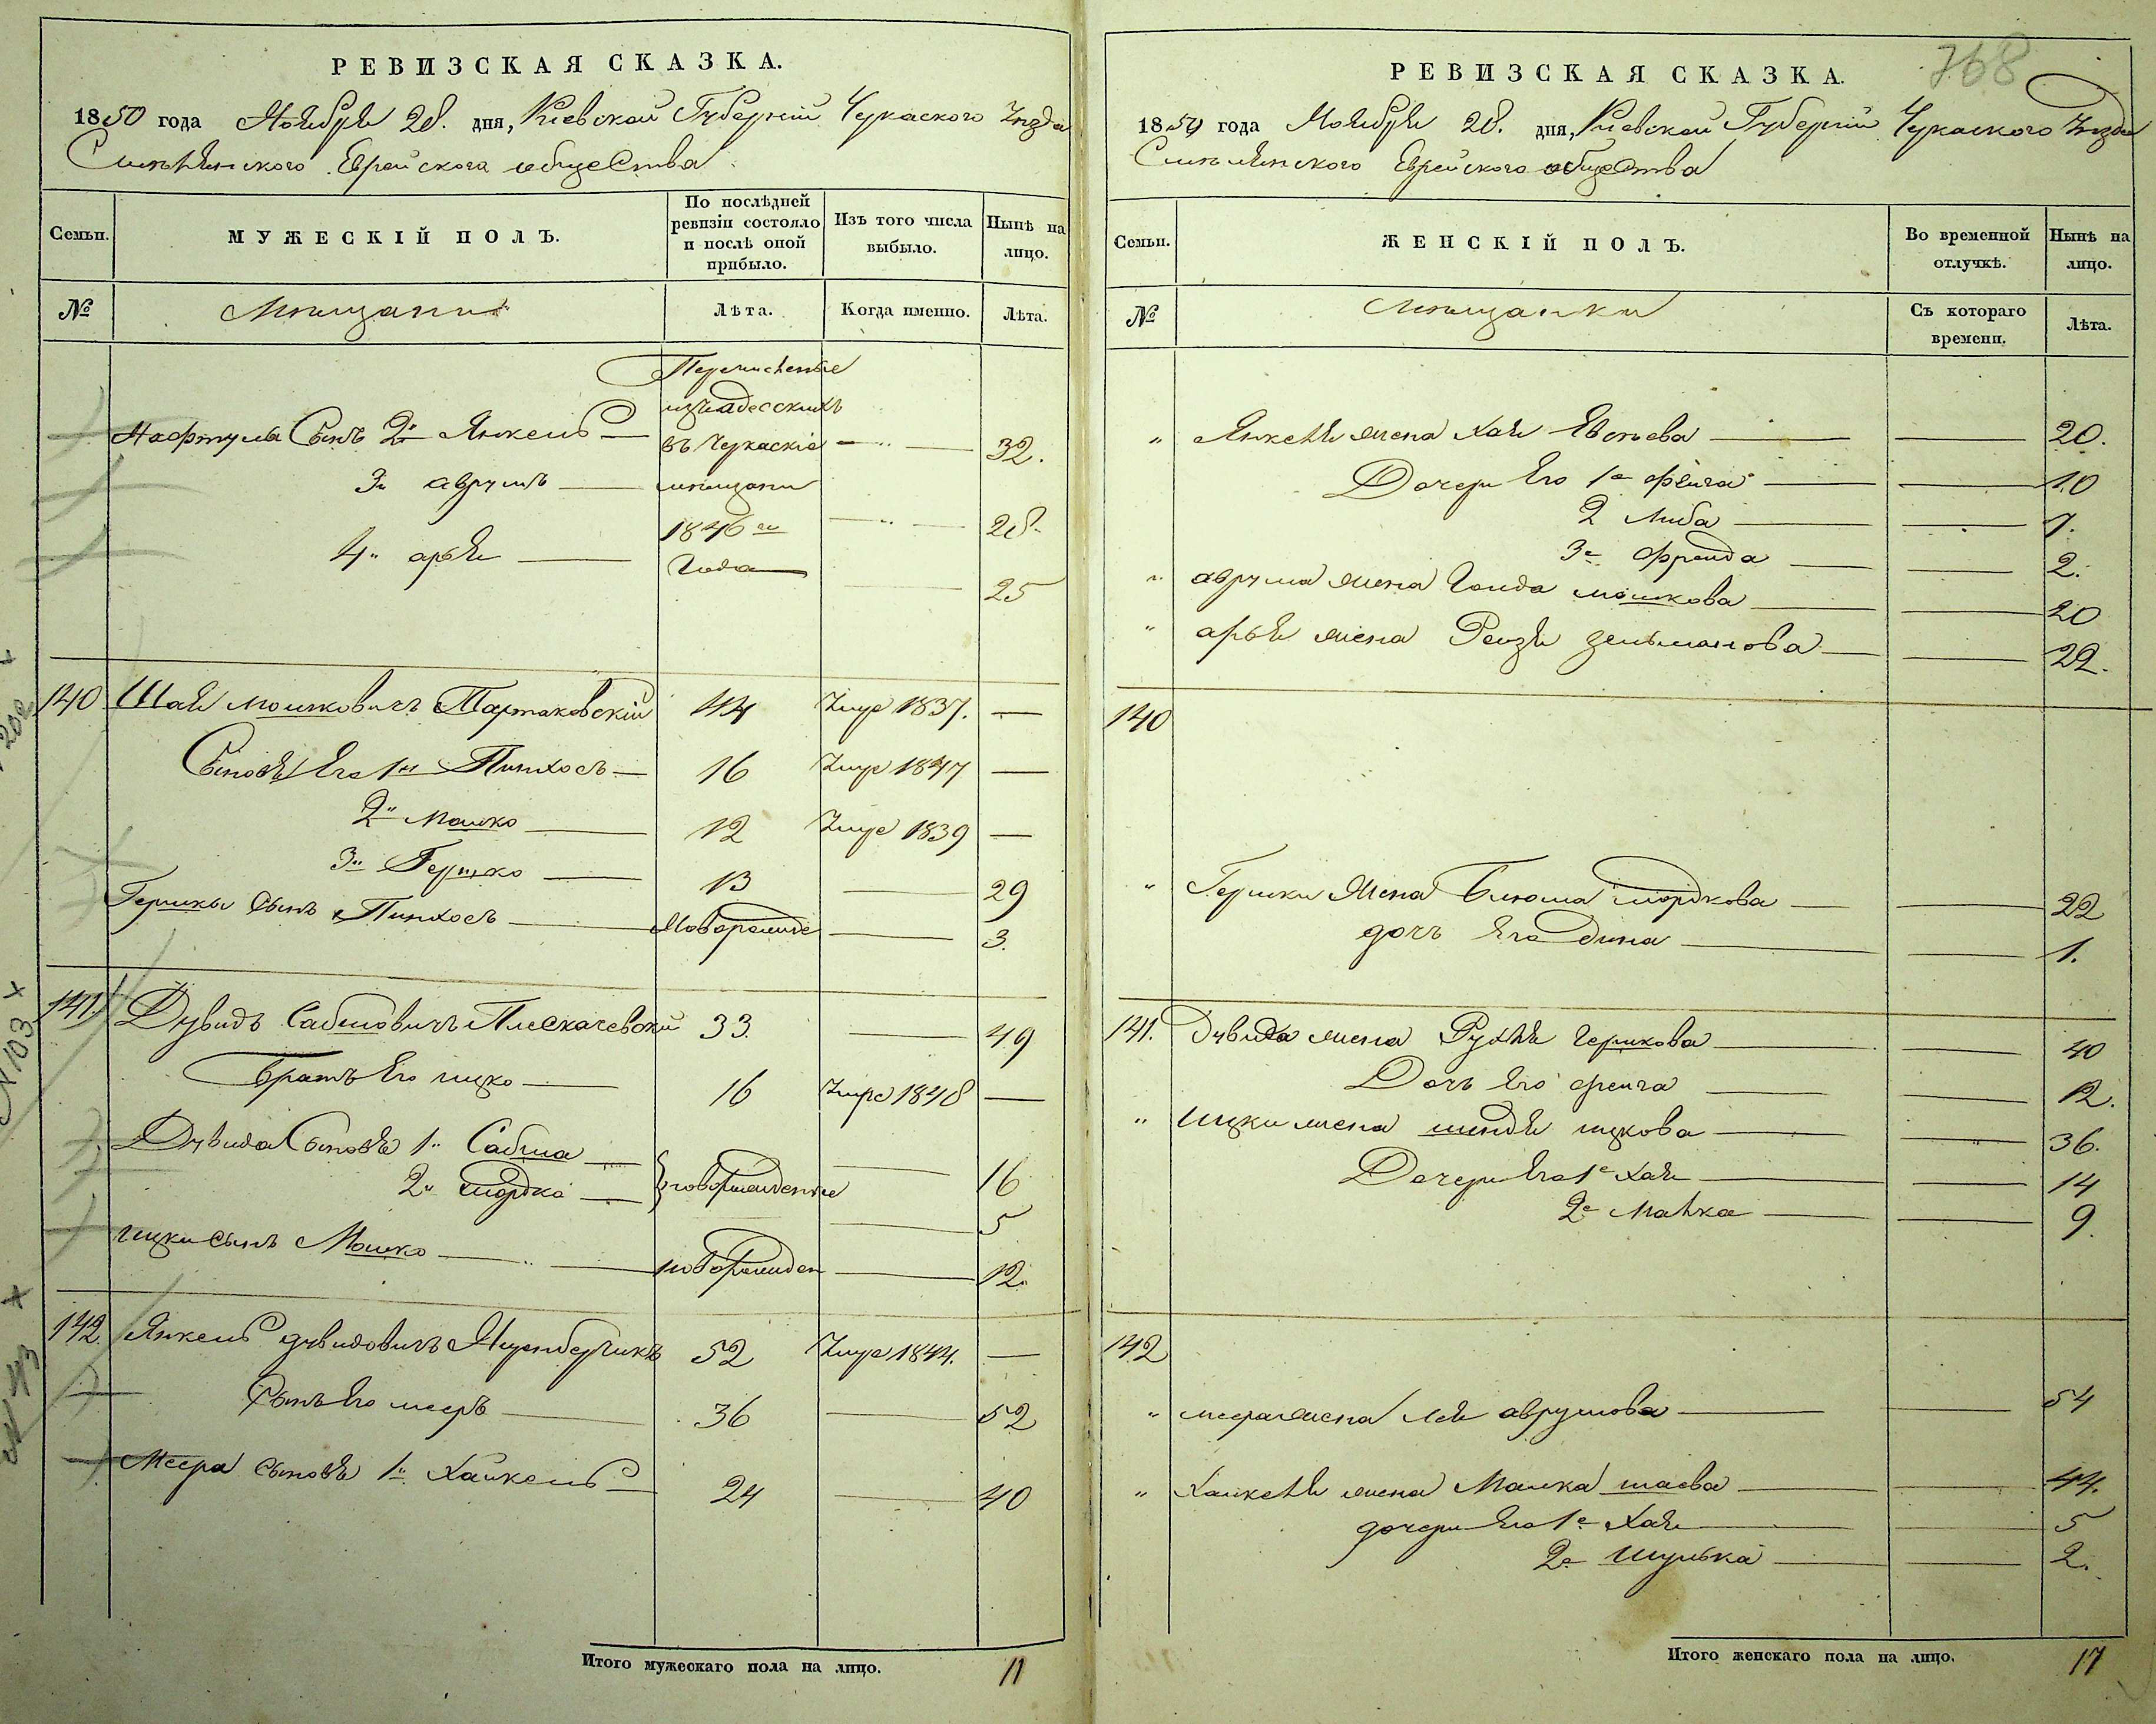 РЕВИЗСКАЯ СКАЗКА.
1850 года Ноября 28. дня, Киевской Губерніи Черкаского Уезда
Смелянского Еврейского общества
Семьи. МУЖЕСКІЙ ПОЛЪ. По послѣдней ревизіи состояло и послѣ оной прибыло. Изъ того числа выбыло. Нынѣ на лицо.
№ Мещани Лѣта. Когда именно. Лѣта.
Перечислены
изъ адесскихъ
Нафтула Сынъ 2й Янкель въ Черкаскіе — " — 32.
3й аврумъ мещани
— " — 28.
4й арья 1846го
года — 25
140 Шая мошковичъ Тартаковскій 44 Умре 1837. —
Сыновя Его 1й Пинхосъ — 16 Умре 1847 —
2й Мошко — 12 Умре 1839 —
3й Гершко — 13 — 29
Гершки сынъ Пинхосъ — Новорожде — 3.
141. Дувидъ Сабшовичъ Плескачевский 33. — 49
Братъ Его ицко — 16 Умре 1848 —
Дувида Сыновя 1й Сабша — новорожденные — 16
2й мордко — 5
ицки сынъ Мошко — новорожден — 12.
142 Янкель дувидовичъ 52 Умре 1844. —
Сынъ Его мееръ — 36 — 52
Меера сыновя 1й Хайкель — 24 — 40
Итого мужескаго пола на лицо. 11
768
РЕВИЗСКАЯ СКАЗКА.
1850 года Ноября 28. дня, Киевской Губерніи Черкаского Уезда
Смелянского Еврейского общества
Семьи. ЖЕНСКІЙ ПОЛЪ. Во временной отлучкѣ. Нынѣ на лицо.
№ Мещанки Съ котораго времени. Лѣта.
" Янкеля жена Хая — — 20.
Дочери Его 1я фейга — — 10
2 Либа — — 7.
3я фрейда — — 2.
" аврума жена Голда мошкова — — 20
" арья жена Рейзя зельманова — — 22.
140
" Гершки Жена Блюма мордкова — — 22
дочъ Его дина — — 1.
141. Дувида жена Рухля гершкова — — 40
Дочъ Его фейга — — 12.
" ицки жена шендя ицкова — — 36.
Дочери Его 1я Хая — — 14
2я Малка — — 9.
142
" меера жена Лея аврумова — — 54
" Хайкеля жена Малка шаева — — 44.
дочери Его 1я Хая — — 5
2я Шулька — — 2.
Итого женскаго пола на лицо. 17
№ 103 ×